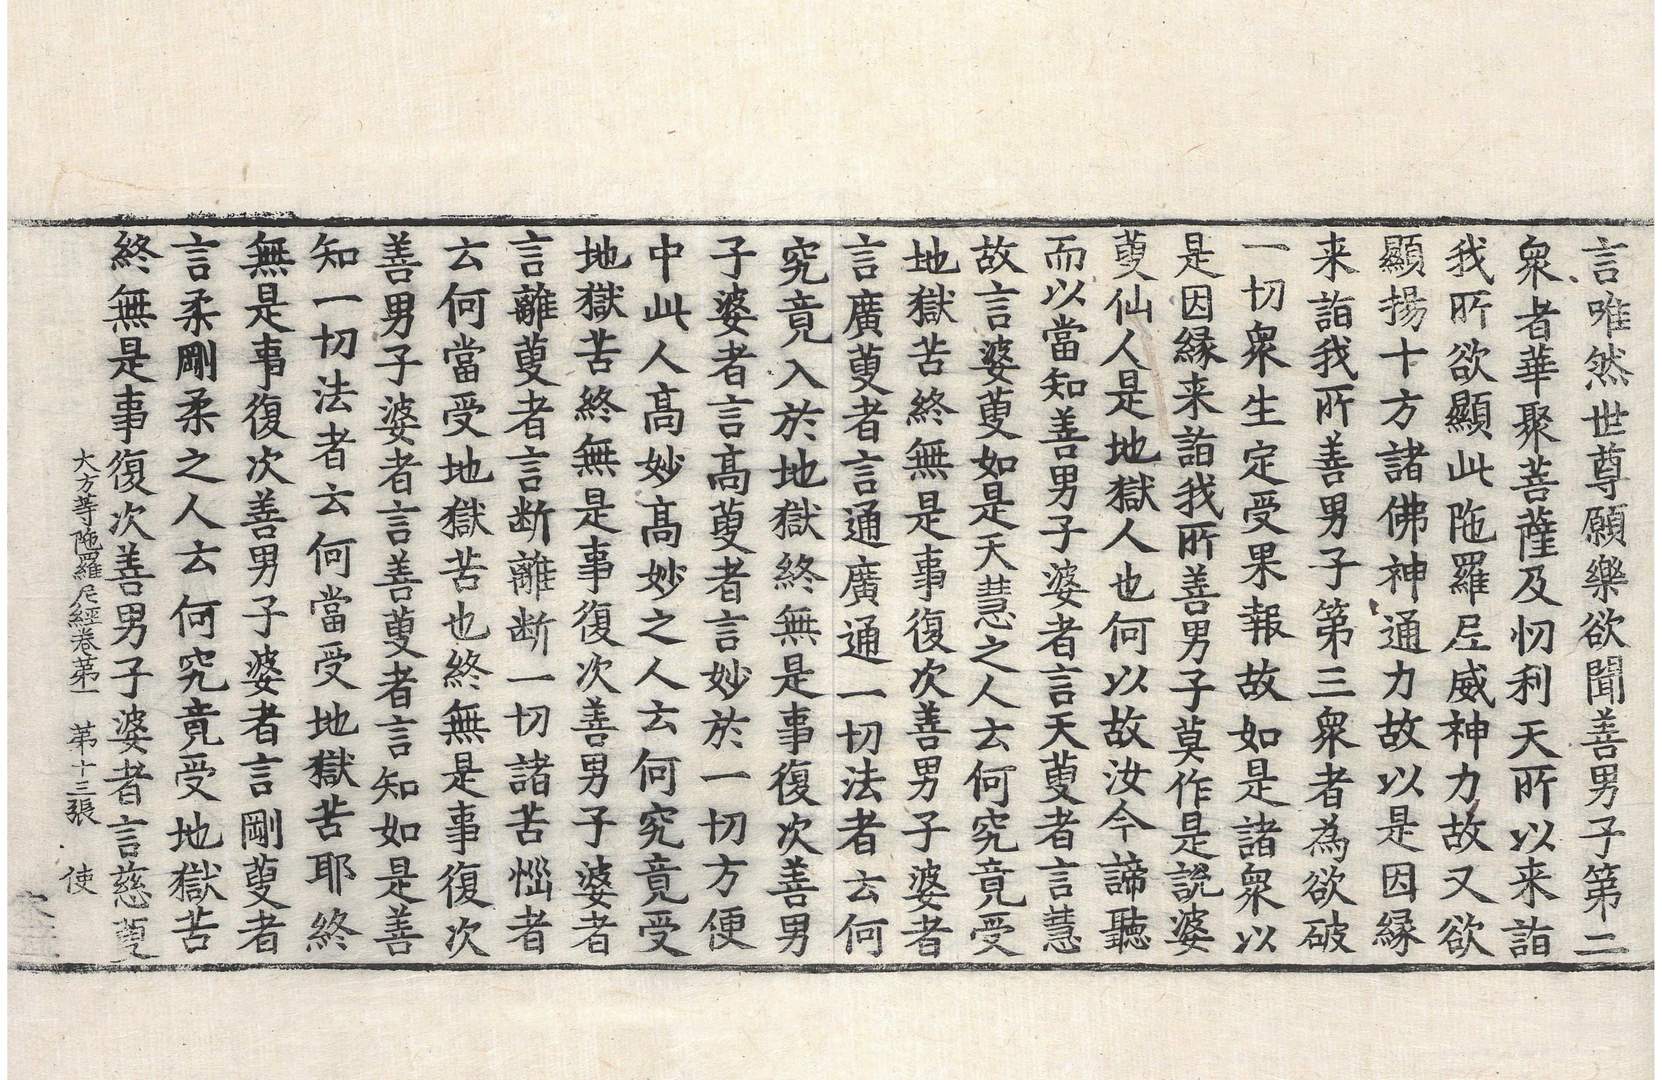 言唯然世尊願樂欲聞善男子第二
衆者華聚菩薩及忉利天所以来詣
我所欲顯此陁羅尼威神力故又欲
顯揚十方諸佛神通力故以是因緣
来詣我所善男子第三衆者為欲破
一切衆生定受果報故如是諸衆以
是因緣来詣我所善男子莫作是說婆
藪仙人是地獄人也何以故汝今諦聽
而以當知善男子婆者言天藪者言慧
故言婆藪如是天慧之人云何究竟受
地獄苦終無是事復次善男子婆者
言廣藪者言通廣通一切法者云何
究竟入於地獄終無是事復次善男
子婆者言高藪者言妙於一切方便
中此人高妙高妙之人云何究竟受
地獄苦終無是事復次善男子婆者
言離藪者言断離断一切諸苦惱者
云何當受地獄苦也終無是事復次
善男子婆者言善藪者言知如是善
知一切法者云何當受地獄苦耶終
無是事復次善男子婆者言剛藪者
言柔剛柔之人云何究竟受地獄苦
終無是事復次善男子婆者言慈藪
大方等陁羅尼經卷第一 第十三張 使